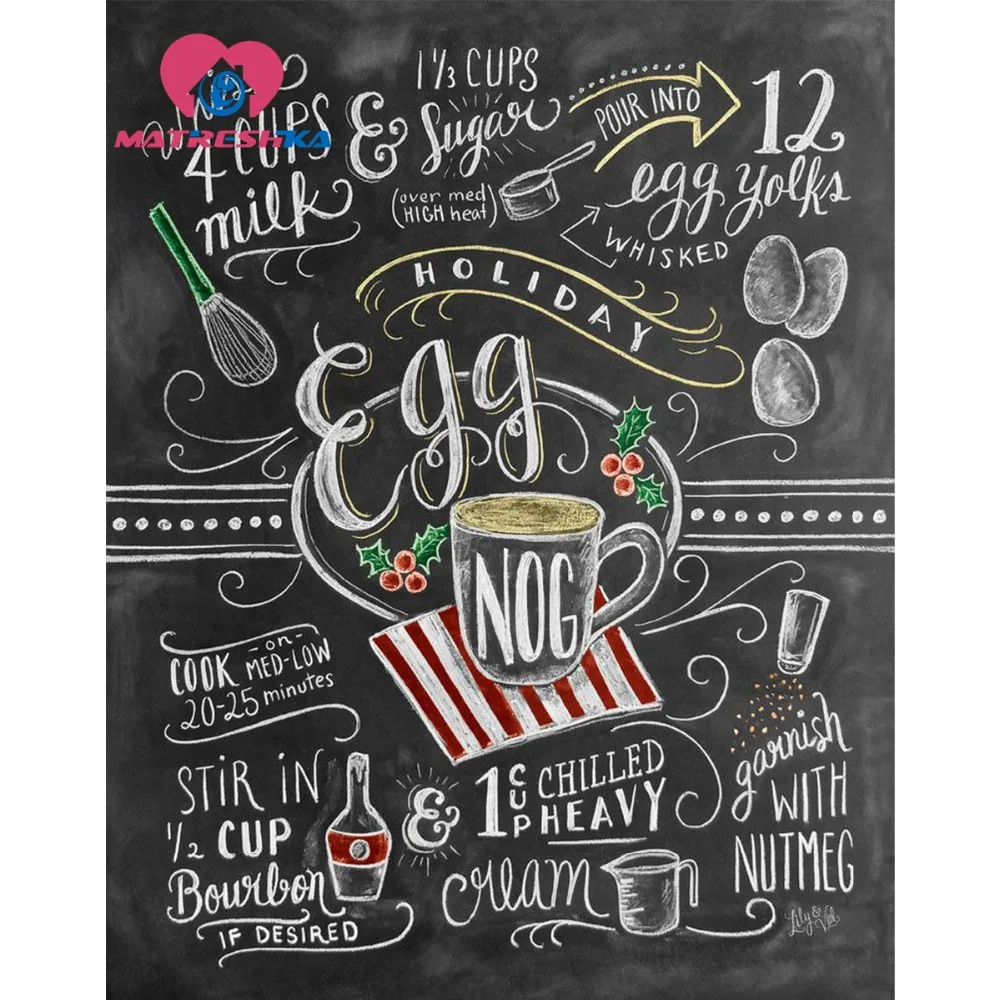 MATRESHKA
4 CUPS
milk
&
1 1/3 CUPS
Sugar
(over med
HIGH heat)
POUR INTO
12
egg yolks
WHISKED
HOLIDAY
Egg
NOG
COOK -on-
MED-LOW
20-25 minutes
STIR IN
1/2 CUP
Bourbon
IF DESIRED
&
1 CUP CHILLED
HEAVY
cream
garnish
WITH
NUTMEG
Lily & Val